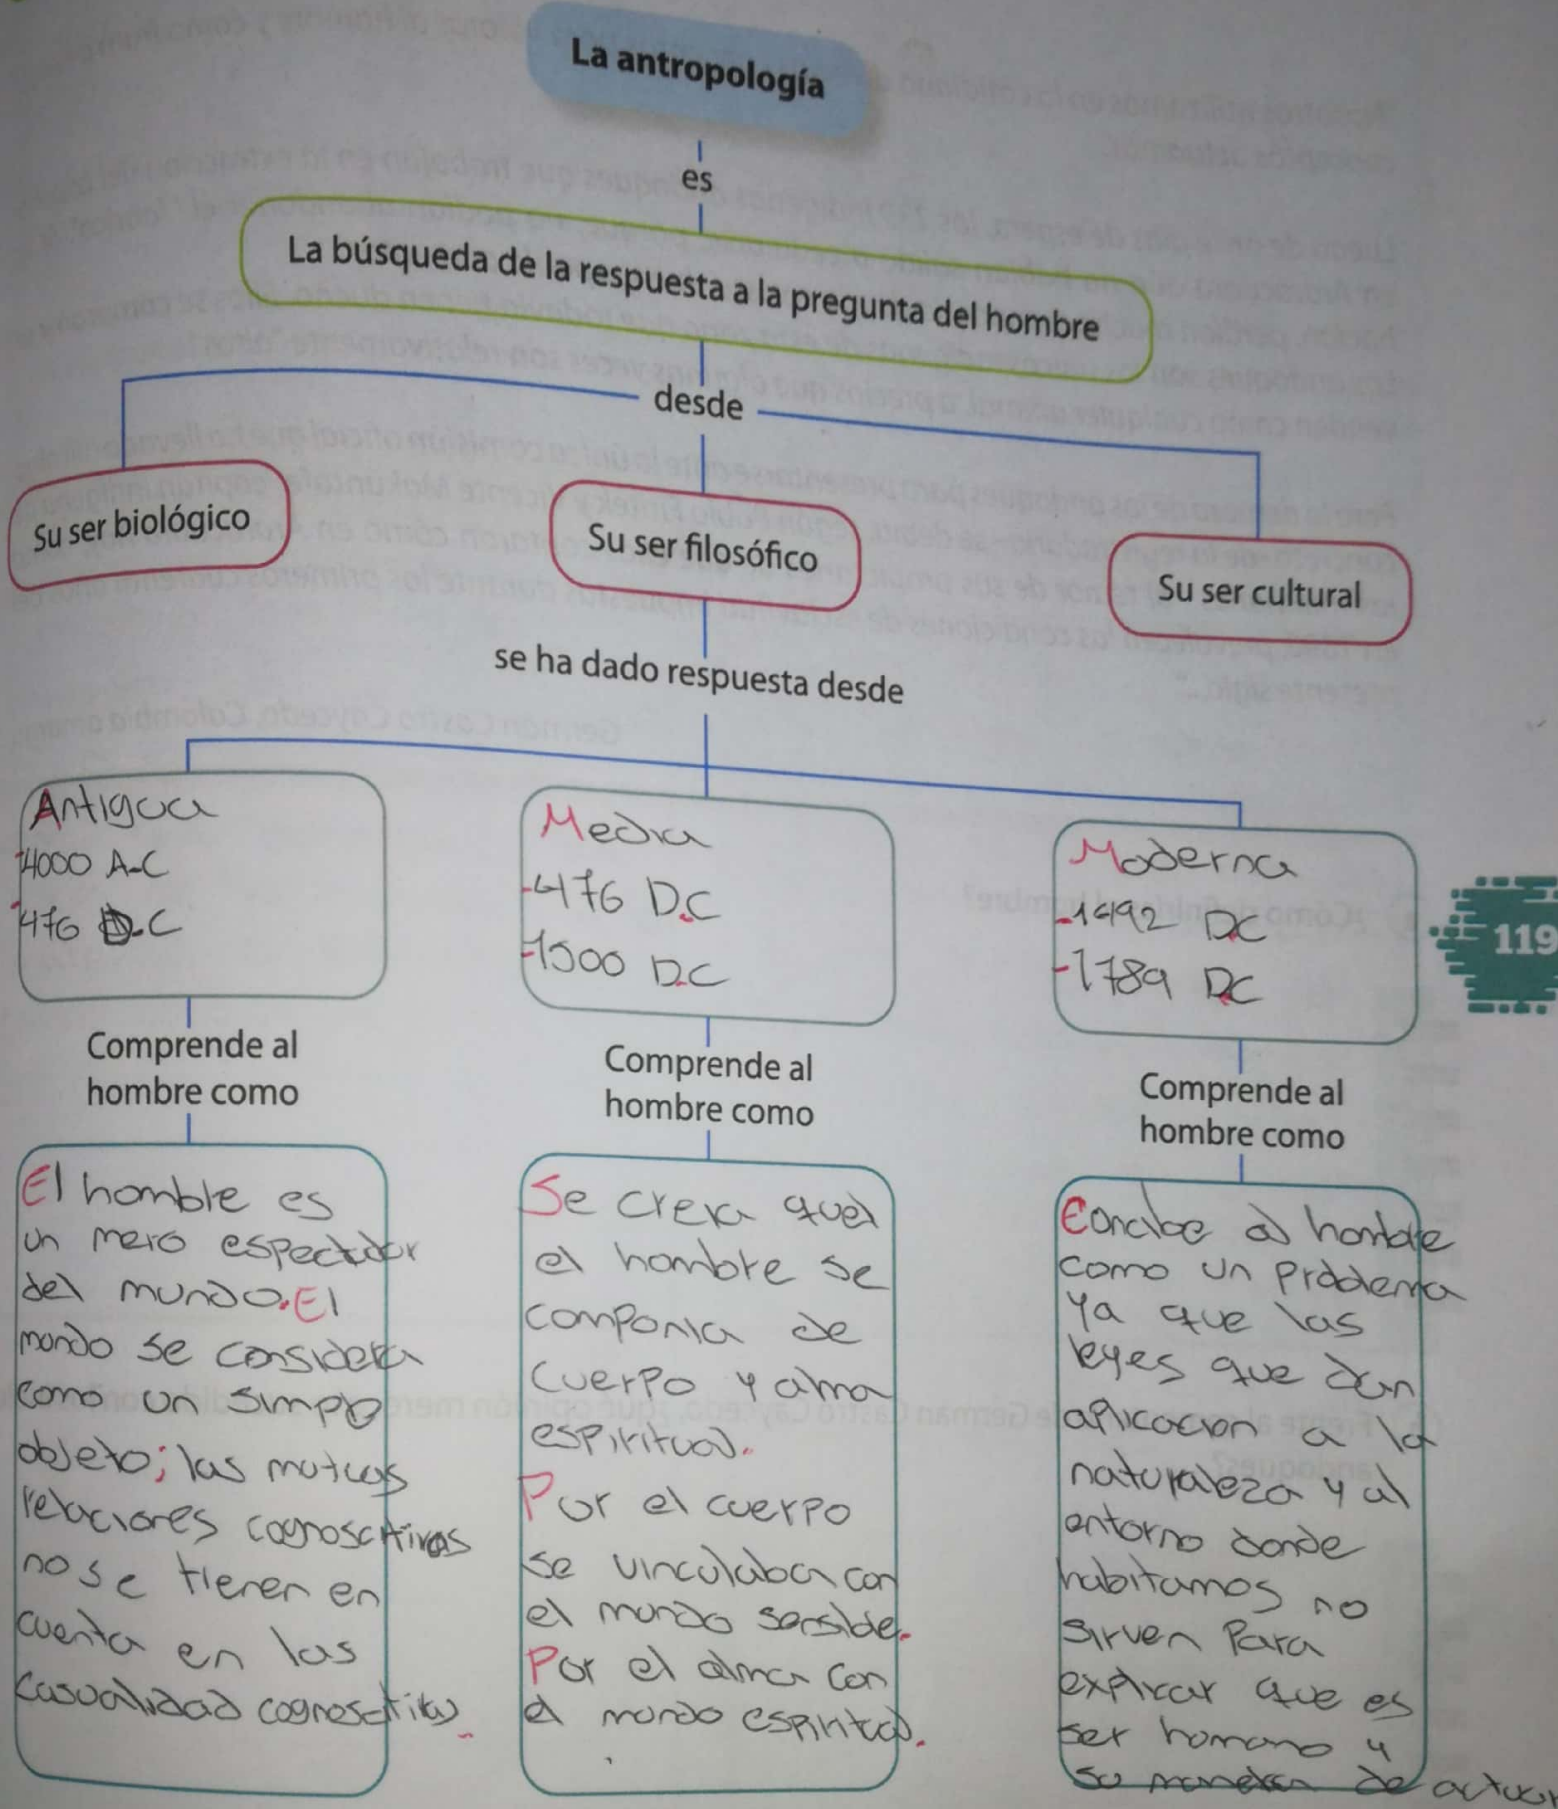 La antropología
es
La búsqueda de la respuesta a la pregunta del hombre
desde
Su ser biológico
Su ser filosófico
Su ser cultural
se ha dado respuesta desde
Antigua
-4000 A-C
-476 D.C
Media
-476 D.C
-1500 D.C
Moderna
-1492 DC
-1789 DC
119
Comprende al
hombre como
Comprende al
hombre como
Comprende al
hombre como
El homble es
un mero espectador
del mundo. El
mundo se considera
como un simple
objeto; las mutuas
relaciones cognoscitivas
no se tienen en
cuenta en las
casualidad cognoscitiva.
Se creia que
el hombre se
componia de
cuerpo y alma
espiritual.
Por el cuerpo
se vinculaba con
el mundo sensible.
Por el alma con
el mundo espiritual.
Concibe al hombre
como un problema
ya que las
leyes que dan
aplicacion a la
naturaleza y al
entorno donde
habitamos no
sirven para
explicar que es
ser humano y
su manera de actuar